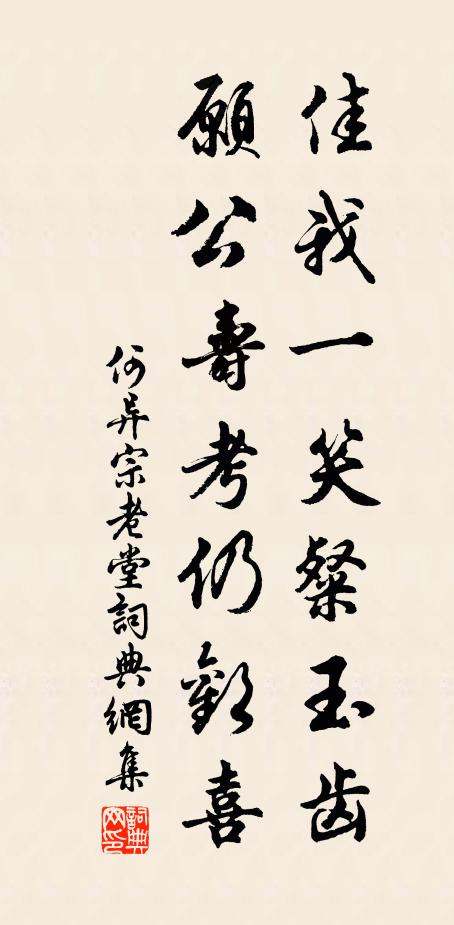 佳我一笑粲玉齿
願公壽考仍歡喜
何异宗老堂詞典網集
詞典网印